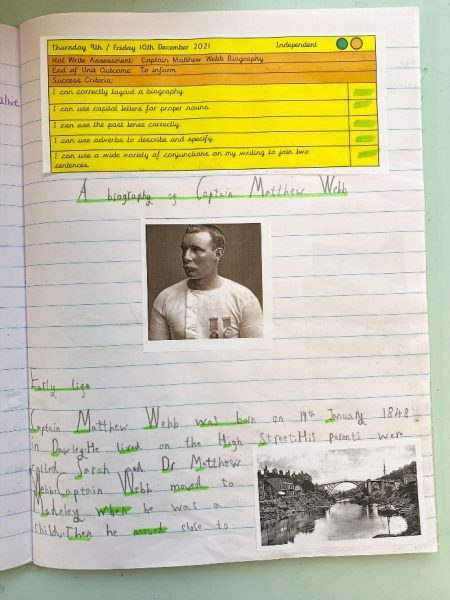 alive
Thursday 9th / Friday 10th December 2021 Independent
Hot Write Assessment: Captain Matthew Webb Biography
End of Unit Outcome: To inform
Success Criteria:
I can correctly layout a biography.
I can use capital letters for proper nouns.
I can use the past tense correctly.
I can use adverbs to describe and specify.
I can use a wide variety of conjunctions in my writing to join two
sentences.
A biography of Captain Matthew Webb
Early life
Captain Matthew Webb was born on 19th January 1848
in Dawley. He lived on the High Street. His parents were
called Sarah and Dr Matthow
Webb. Captain Webb moved to
Madeley when he was a
child. Then he moved close to